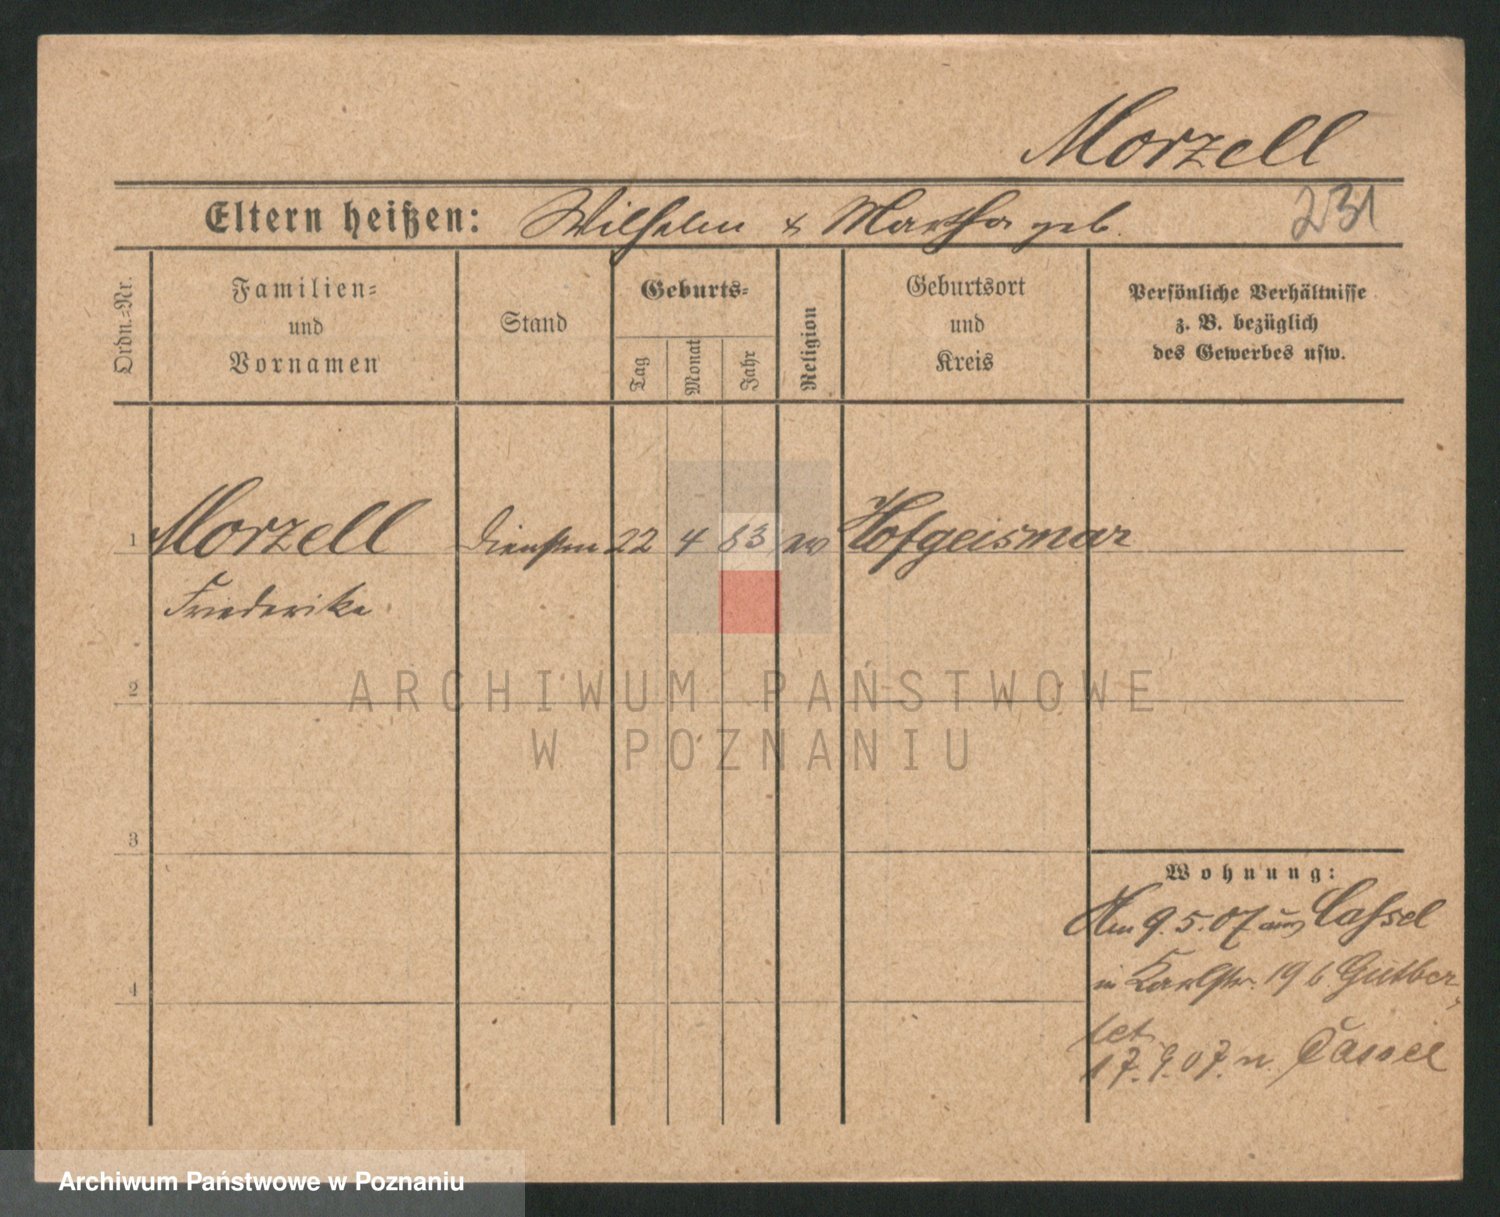 Morzell
231
Eltern heißen: Wilhelm & Martha geb.
Ordn.-Nr.
Familien-
und
Vornamen
Stand
Geburts-
Tag
Monat
Jahr
Religion
Geburtsort
und
Kreis
Persönliche Verhältnisse
z. B. bezüglich
des Gewerbes usw.
1 Morzell 22 4 83 ev Hofgeismar
Friederike
2
ARCHIWUM PAŃSTWOWE
W POZNANIU
3
Wohnung:
Am 9.5.07 aus Cassel
in Karlstr. 19 b. Gutber-
let
4
17.9.07. n. Cassel
Archiwum Państwowe w Poznaniu